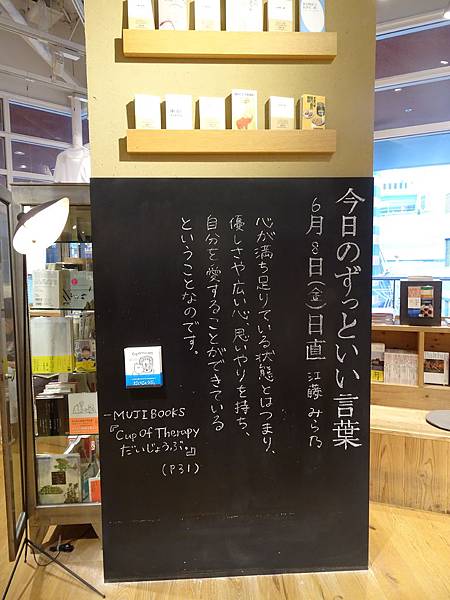 今日のずっといい言葉
6月8日(金)日直 江藤 みら乃
心が満ち足りている状態とはつまり、
優しさや広い心、思いやりを持ち、
自分を愛することができている
ということなのです。
-MUJIBOOKS
『Cup Of Therapy
だいじょうぶ。』
(P31)